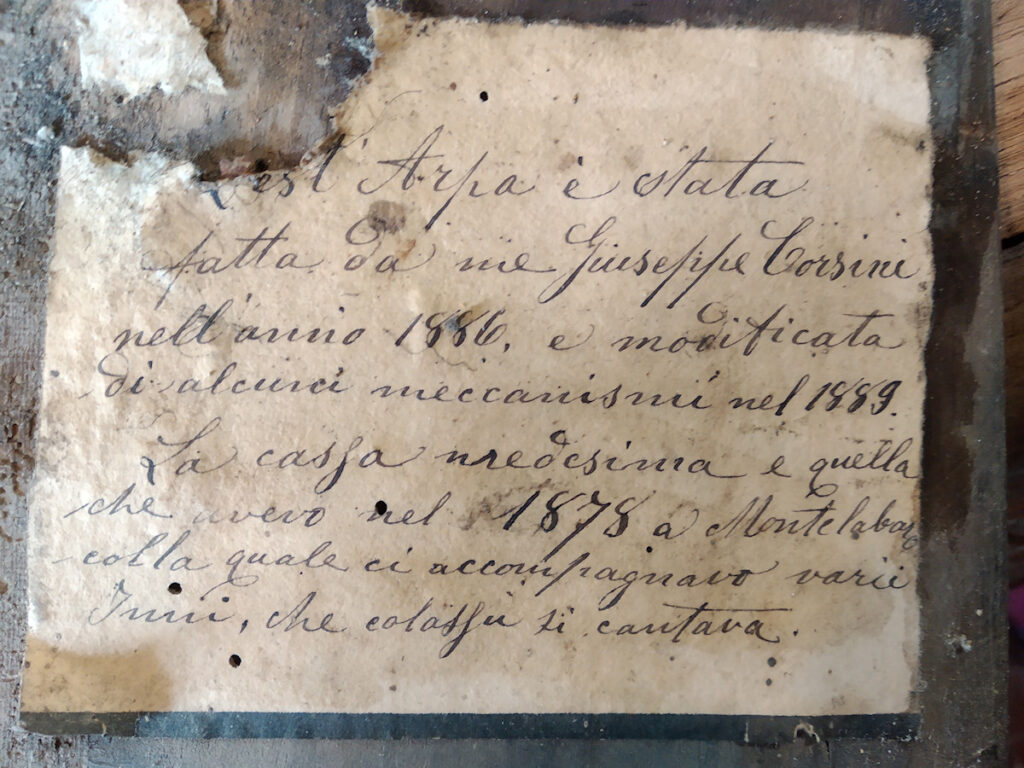 Quest' Arpa è stata
fatta da me Giuseppe Corsini
nell'anno 1886, e modificata
di alcuni meccanismi nel 1889.
La cassa medesima e quella
che avevo nel 1878 a Montelabar
colla quale ci accompagnavo varii
Inni, che colassù si cantava.